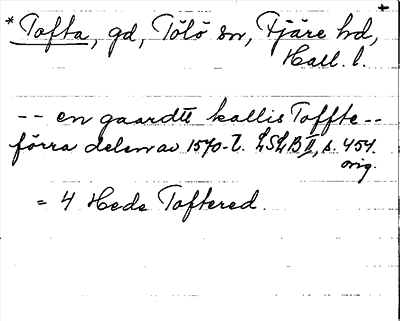 * Tofta, gd, Tölö sn, Fjäre hd,
Hall. l.
-- en gaardtt kallis Toffte --
förra delen av 1570-t. LSLB II, s. 454.
orig.
= 4 Heds Toftered.